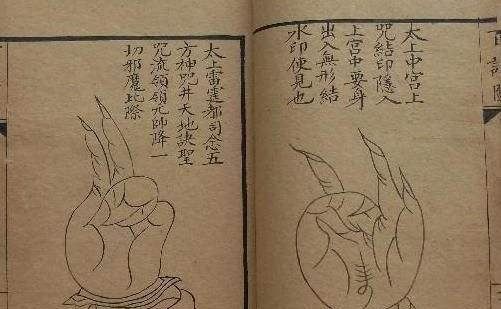 太上中宮上
咒結印隱入
上宮中要身
出入無形結
水印便見也
太上雷霆都司念五
方神咒并天地訣聖
咒流領領九師降一
切邪魔比除